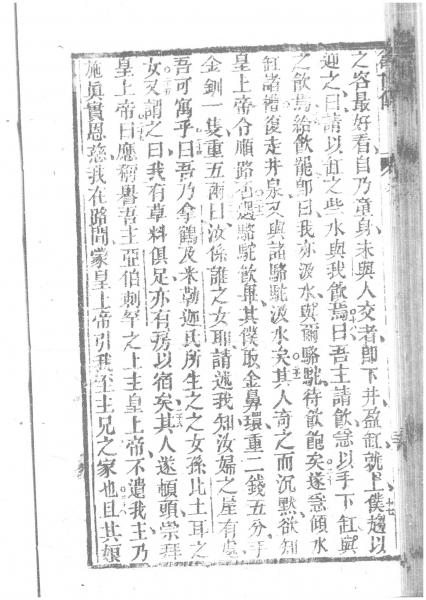 之容最好看自乃童身未與人交者即下井盈缸就上僕趨以
迎之曰請以缸之些水與我飲焉曰吾主請飲忩以手下缸與
之飲焉給飲罷即曰我亦汲水與爾駱駝待飲飽矣遂忩傾水
缸諸槽復走井泉又與諸駱駝汲水矣其人奇之而沉默欲知
皇上帝令順路否遇駱駝飲畢其僕取金鼻環重二錢五分手
金釧一隻重五兩曰汝係誰之女耶請述我知汝婦之屋有處
吾可寓乎曰吾乃拿鶴及米勒迦氏所生之之女孫比土耳之
女又謂之曰我有草料俱足亦有房以宿矣其人遂頓頭崇拜
皇上帝曰應稱譽吾主亞伯喇罕之上主皇上帝不遺我主乃
施眞實恩慈我在路間蒙皇上帝引我至主兄之家也且其娘